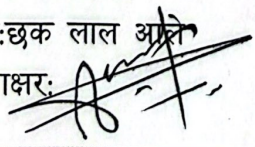 :छक लाल आले
ाक्षर: